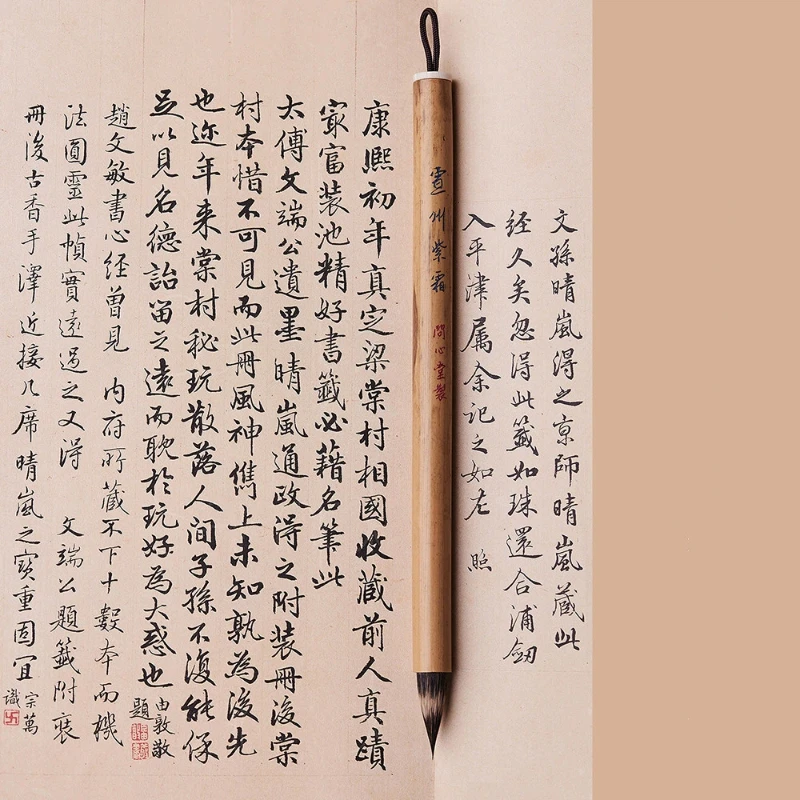 文孫晴嵐得之京師晴嵐藏此
经久矣忽得此籤如珠還合浦劒
入平津属余记之如左 照
宣州紫霜 問心堂製
康熙初年真定梁棠村相國收藏前人真蹟
㝡富装池精好書籤必藉名筆此
太傅文端公遺墨晴嵐通政得之附装冊後棠
村本惜不可見而此冊風神儁上未知孰為後先
也迩年来棠村秘玩散落人间子孫不復能保
足以見名德詒畱之遠而耽於玩好為大惑也 由敦敬題
趙文敏書心经曾見 内府所藏不下十數本而機
法圓靈此幀實遠過之又得 文端公題籤附裝
冊後古香手澤近接几席晴嵐之寶重固宜 宗萬識